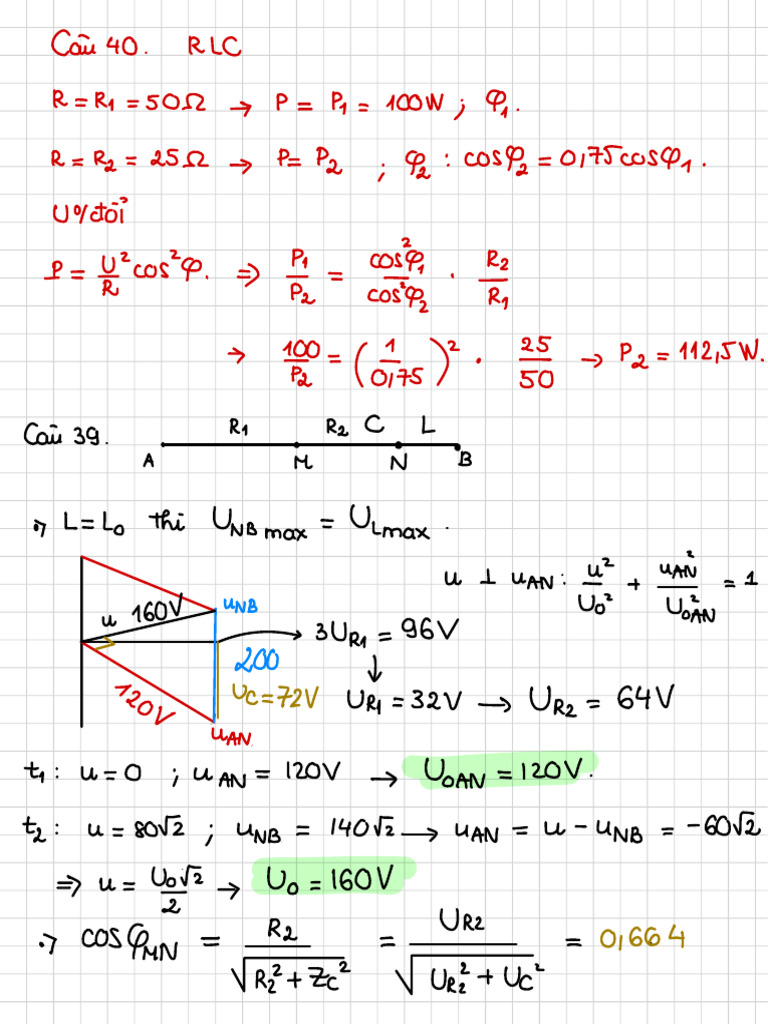 Câu 40. RLC
R = R1 = 50Ω → P = P1 = 100W ; φ1.
R = R2 = 25Ω → P = P2 ; φ2 : cosφ2 = 0,75cosφ1.
U o/đổi
P = U²/R cos²φ. ⇒ P1/P2 = cos²φ1/cos²φ2 . R2/R1
→ 100/P2 = (1/0,75)² . 25/50 → P2 = 112,5W.
Câu 39. R1 R2 C L
A M N B
L = L0 thì UNBmax = ULmax.
u ⊥ uAN : u²/U0² + uAN²/U0AN² = 1
u 160V uNB
3UR1 = 96V
200
120V UC = 72V UR1 = 32V → UR2 = 64V
uAN
t1 : u = 0 ; uAN = 120V → U0AN = 120V.
t2 : u = 80√2 ; uNB = 140√2 → uAN = u - uNB = -60√2
⇒ u = U0√2/2 → U0 = 160V
cosφMN = R2/√(R2² + ZC²) = UR2/√(UR2² + UC²) = 0,664